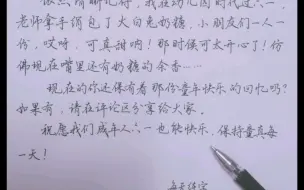 依然清晰记得，我在幼儿园时代过六一，
老师拿手绢包了大白兔奶糖，小朋友们一人一
份，哎呀，可真甜呐！那时候可太开心了！仿
佛现在嘴里还有奶糖的余香…
现在的你还保有着那份童年快乐的回忆吗？
如果有，请在评论区分享给大家。
祝愿我们成年人六一也能快乐，保持童真每
一天！
每天练字